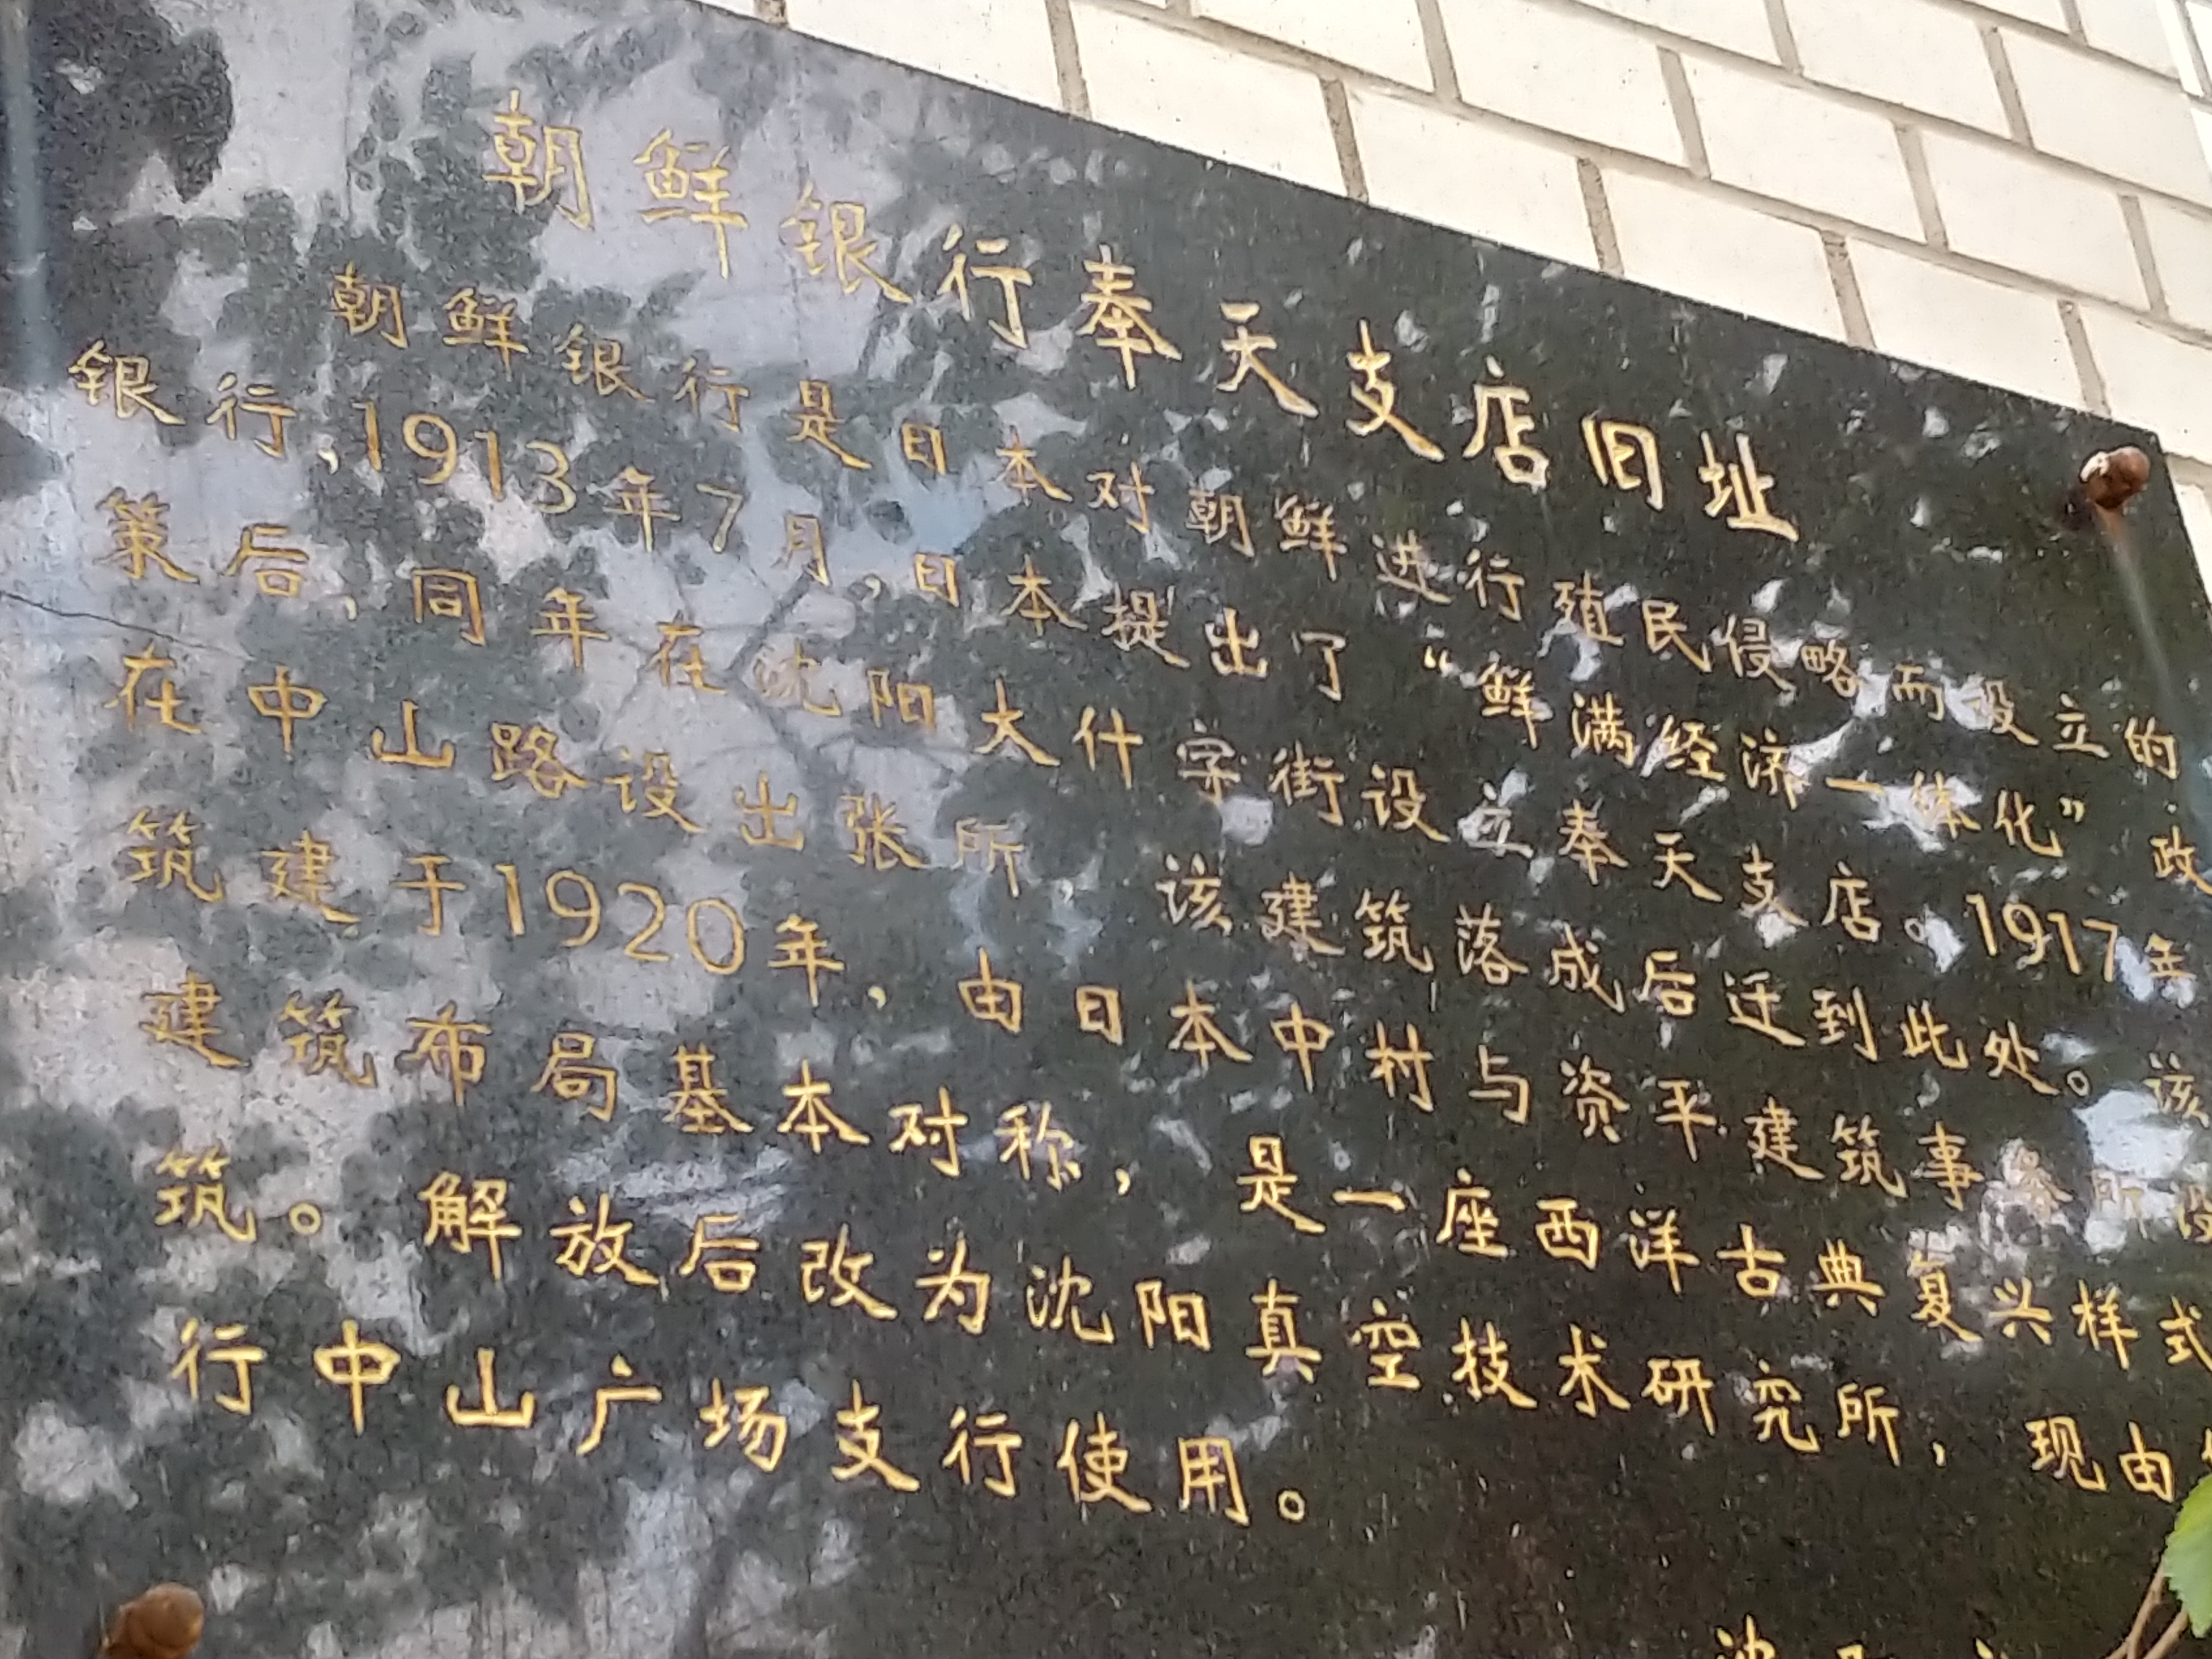 朝鲜银行奉天支店旧址
朝鲜银行是日本对朝鲜进行殖民侵略而设立的
银行，1913年7月，日本提出了“鲜满经济一体化”政
策后，同年在沈阳大什字街设立奉天支店。1917年
在中山路设出张所 该建筑落成后迁到此处。该
筑建于1920年，由日本中村与资平建筑事务所设
建筑布局基本对称，是一座西洋古典复兴样式
筑。解放后改为沈阳真空技术研究所，现由
行中山广场支行使用。
沈